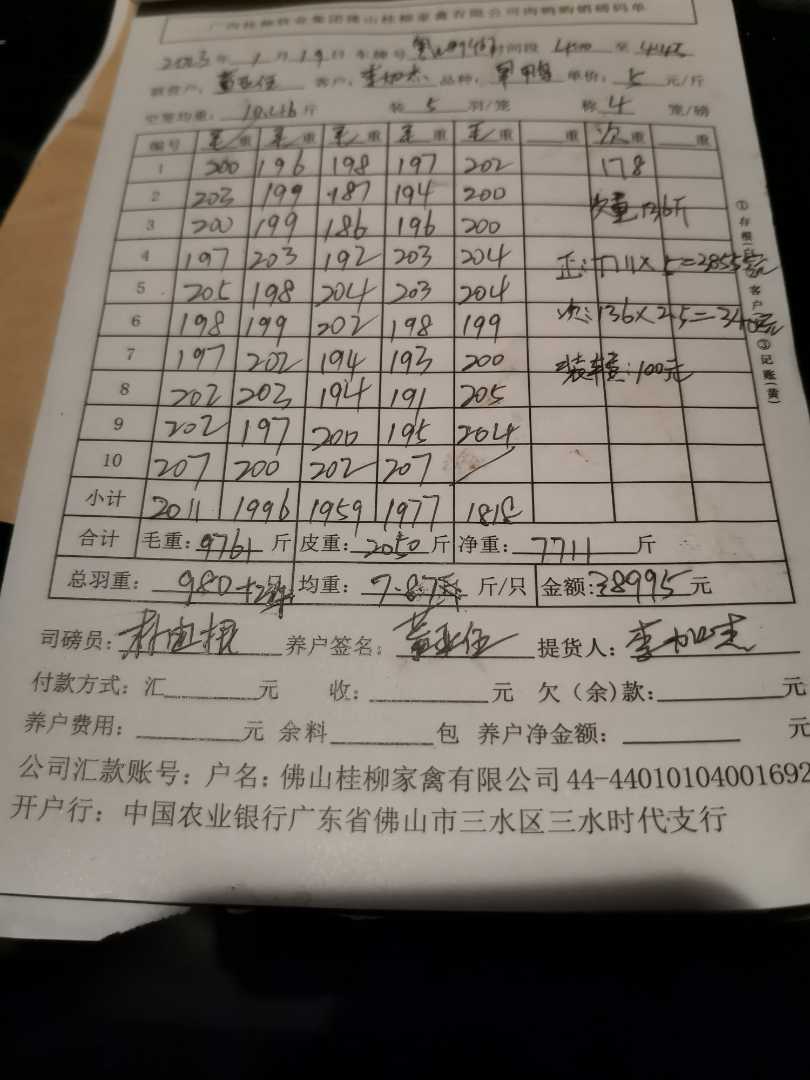 广西桂柳牧业集团佛山桂柳家禽有限公司肉鸭购销磅码单
2023年 1 月 19日 车牌号 时间段 至
客户: 李加杰 品种: 单价: 5 元/斤
空笼均重: 斤 装 5 羽/笼 称 4 笼/磅
编号 毛重 毛重 毛重 毛重 毛重 重 次重 重
1 200 196 198 197 202 178
2 203 199 187 194 200
次重:136斤
3 200 199 186 196 200
4 197 203 192 203 204
正:7711×5=38555元
5 205 198 204 203 204
6 198 199 202 198 199
次:136×2.5=340元
7 197 202 194 193 200
装车费:100元
8 202 203 194 191 205
9 202 197 200 195 204
10 207 200 202 207 /
小计 2011 1996 1959 1977 1818
合计 毛重: 9761 斤 皮重: 2050 斤 净重: 7711 斤
总羽重: 980 只 均重: 7.87 斤/只 金额: 38995 元
司磅员: 养户签名: 提货人: 李加杰
付款方式: 汇 元 收: 元 欠(余)款: 元
养户费用: 元 余料 包 养户净金额: 元
公司汇款账号: 户名: 佛山桂柳家禽有限公司 44-44010104001692
开户行: 中国农业银行广东省佛山市三水区三水时代支行
①存根(白) 客户 ③记账(黄)